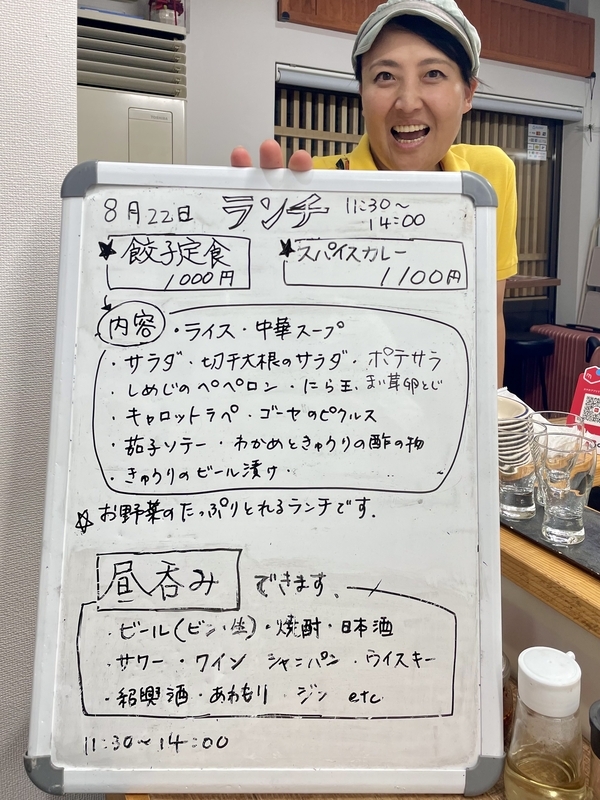 8月22日 ランチ 11:30〜
14:00
★餃子定食
1000円
★スパイスカレー
1100円
内容 ・ライス・中華スープ
・サラダ・切干大根のサラダ・ポテサラ
・しめじのペペロン・にら玉、まい茸卵とじ
・キャロットラペ・ゴーヤのピクルス
・茄子ソテー・わかめときゅうりの酢の物
・きゅうりのビール漬け・
☆お野菜のたっぷりとれるランチです.
昼呑み できます、
・ビール(ビン・生)・焼酎・日本酒
・サワー・ワイン シャンパン・ウイスキー
・紹興酒・あわもり・ジン etc
11:30〜14:00